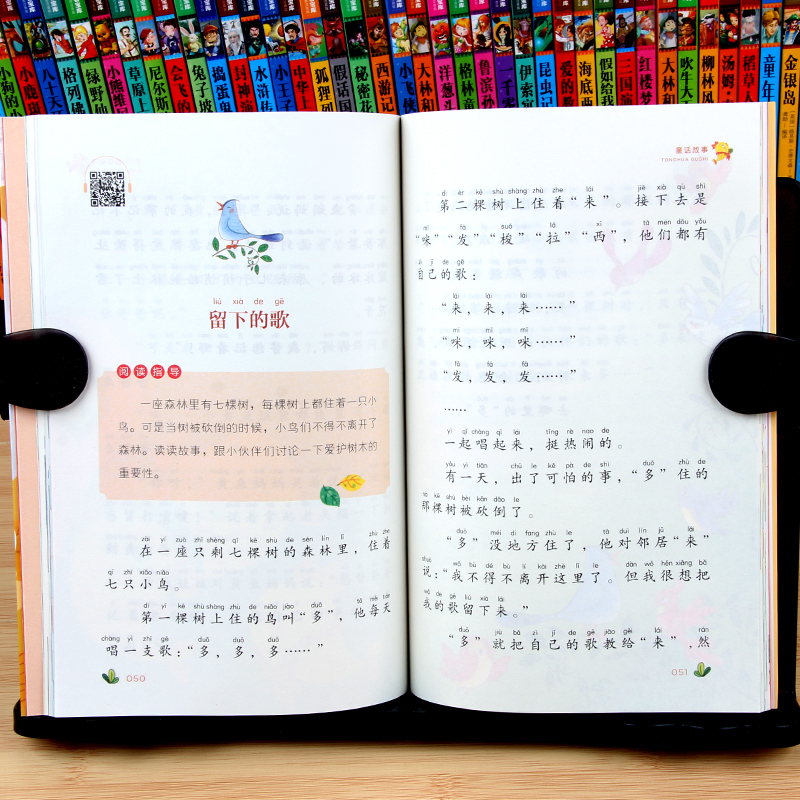 小狗的小
小鹿斑
八十天
格列佛
绿野仙
小熊维尼
草原上
尼尔斯
会飞的
兔子坡
捣蛋鬼
封神演
水浒传
小王子
中华上
狐狸列
假话国
秘密花
西游记
小飞侠
大林和
洋葱头
格林童
鲁滨孙
一千零
伊索寓
昆虫记
爱的教
海底两
假如给我
三国演
红楼梦
大林和
吹牛大
柳林风
汤姆
稻草人
童年
金银岛
liú xià de gē
留下的歌
阅读指导
一座森林里有七棵树，每棵树上都住着一只小
鸟。可是当树被砍倒的时候，小鸟们不得不离开了
森林。读读故事，跟小伙伴们讨论一下爱护树木的
重要性。
zài yí zuò zhǐ shèng qī kē shù de sēn lín lǐ zhù zhe
在一座只剩七棵树的森林里，住着
qī zhī xiǎo niǎo
七只小鸟。
dì yī kē shù shàng zhù de niǎo jiào duō tā měi tiān
第一棵树上住的鸟叫“多”，他每天
chàng yì zhī gē duō duō duō
唱一支歌：“多，多，多……”
050
童话故事
TONGHUA GUSHI
dì èr kē shù shàng zhù zhe lái jiē xià qù shì
第二棵树上住着“来”。接下去是
mī fā suō lā xī tā men dōu yǒu
“咪”“发”“梭”“拉”“西”，他们都有
zì jǐ de gē
自己的歌：
lái lái lái
“来，来，来……”
mī mī mī
“咪，咪，咪……”
fā fā fā
“发，发，发……”
……
yì qǐ chàng qǐ lái tǐng rè nao de
一起唱起来，挺热闹的。
yǒu yì tiān chū le kě pà de shì duō zhù de
有一天，出了可怕的事，“多”住的
nà kē shù bèi kǎn dǎo le
那棵树被砍倒了。
duō méi dì fang zhù le tā duì lín jū lái
“多”没地方住了，他对邻居“来”
shuō wǒ bù dé bù lí kāi zhè lǐ le dàn wǒ hěn xiǎng bǎ
说：“我不得不离开这里了。但我很想把
wǒ de gē liú xià lái
我的歌留下来。”
duō jiù bǎ zì jǐ de gē jiāo gěi lái rán
“多”就把自己的歌教给“来”，然
051